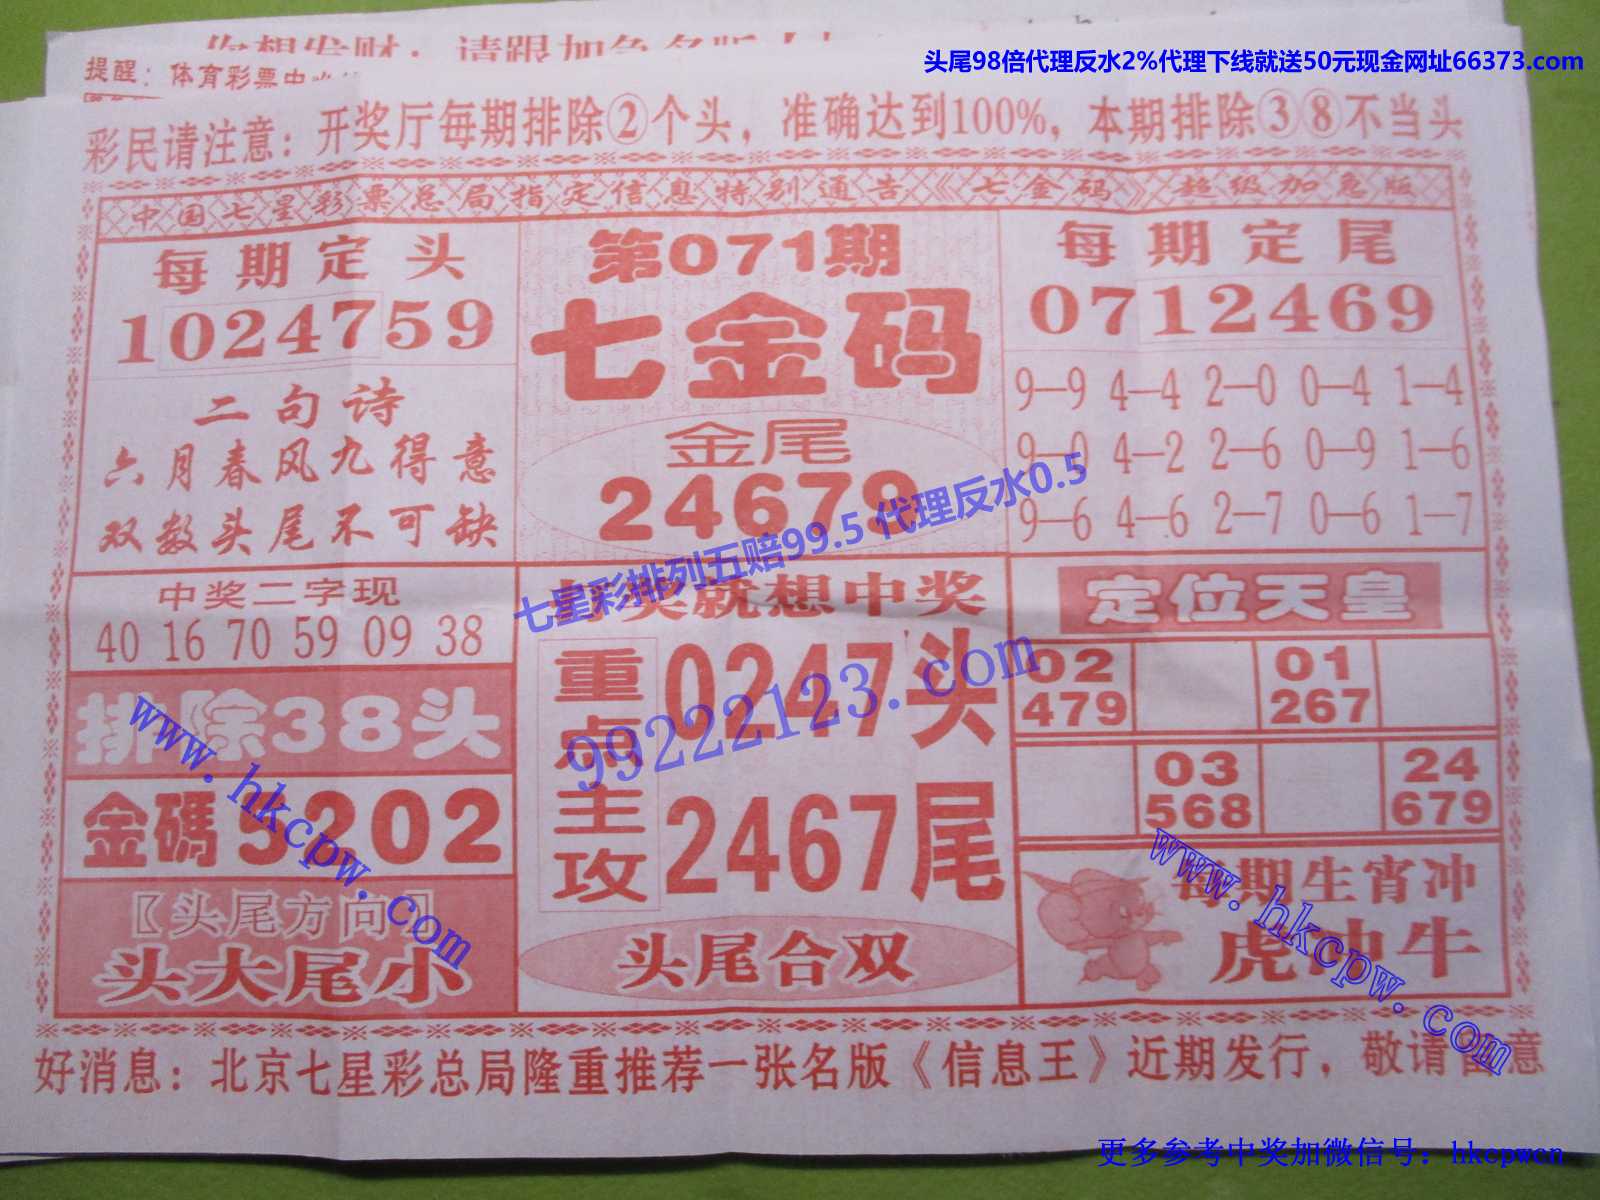 头尾98倍代理反水2%代理下线就送50元现金网址66373.com
提醒：体育彩票中
彩民请注意：开奖厅每期排除②个头，准确达到100%，本期排除③⑧不当头
中国七星彩票总局指定信息特别通告《七金码》超级加色版
每期定头
1024759
二句诗
六月春风九得意
双数头尾不可缺
第071期
七金码
金尾
24679
每期定尾
0712469
9—9 4—4 2—0 0—4 1—4
9—0 4—2 2—6 0—9 1—6
9—6 4—6 2—7 0—6 1—7
七星彩排列五赔99.5 代理反水0.5
中奖二字现
40 16 70 59 09 38
排除38头
金碼5202
〖头尾方向〗
头大尾小
奖就想中奖
重点主攻
0247头
2467尾
头尾合双
99222123.com
定位天皇
02 01
479 267
03 24
568 679
每期生宵冲
虎冲牛
www.hkcpw.com
www.hkcpw.com
好消息：北京七星彩总局隆重推荐一张名版《信息王》近期发行，敬请留意
更多参考中奖加微信号：hkcpwcn